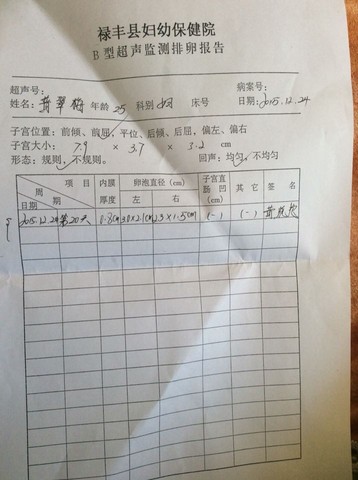 禄丰县妇幼保健院
B型超声监测排卵报告
超声号: 病案号:
姓名: 翠 年龄 25 科别 妇 床号 日期: 2015.12.24
子宫位置: 前倾、前屈, 平位、后倾、后屈, 偏左、偏右
子宫大小: 7.9 × 3.7 × 3.2 cm
形态: 规则, 不规则。 回声: 均匀, 不均匀
项目 内膜 卵泡直径(cm) 子宫直 其它 签名
周期 厚度 左 右 肠凹
日期 (cm)
2015.12.24 第20天 0.8cm 3.0×2.1cm 2.3×1.5cm (-) (-)